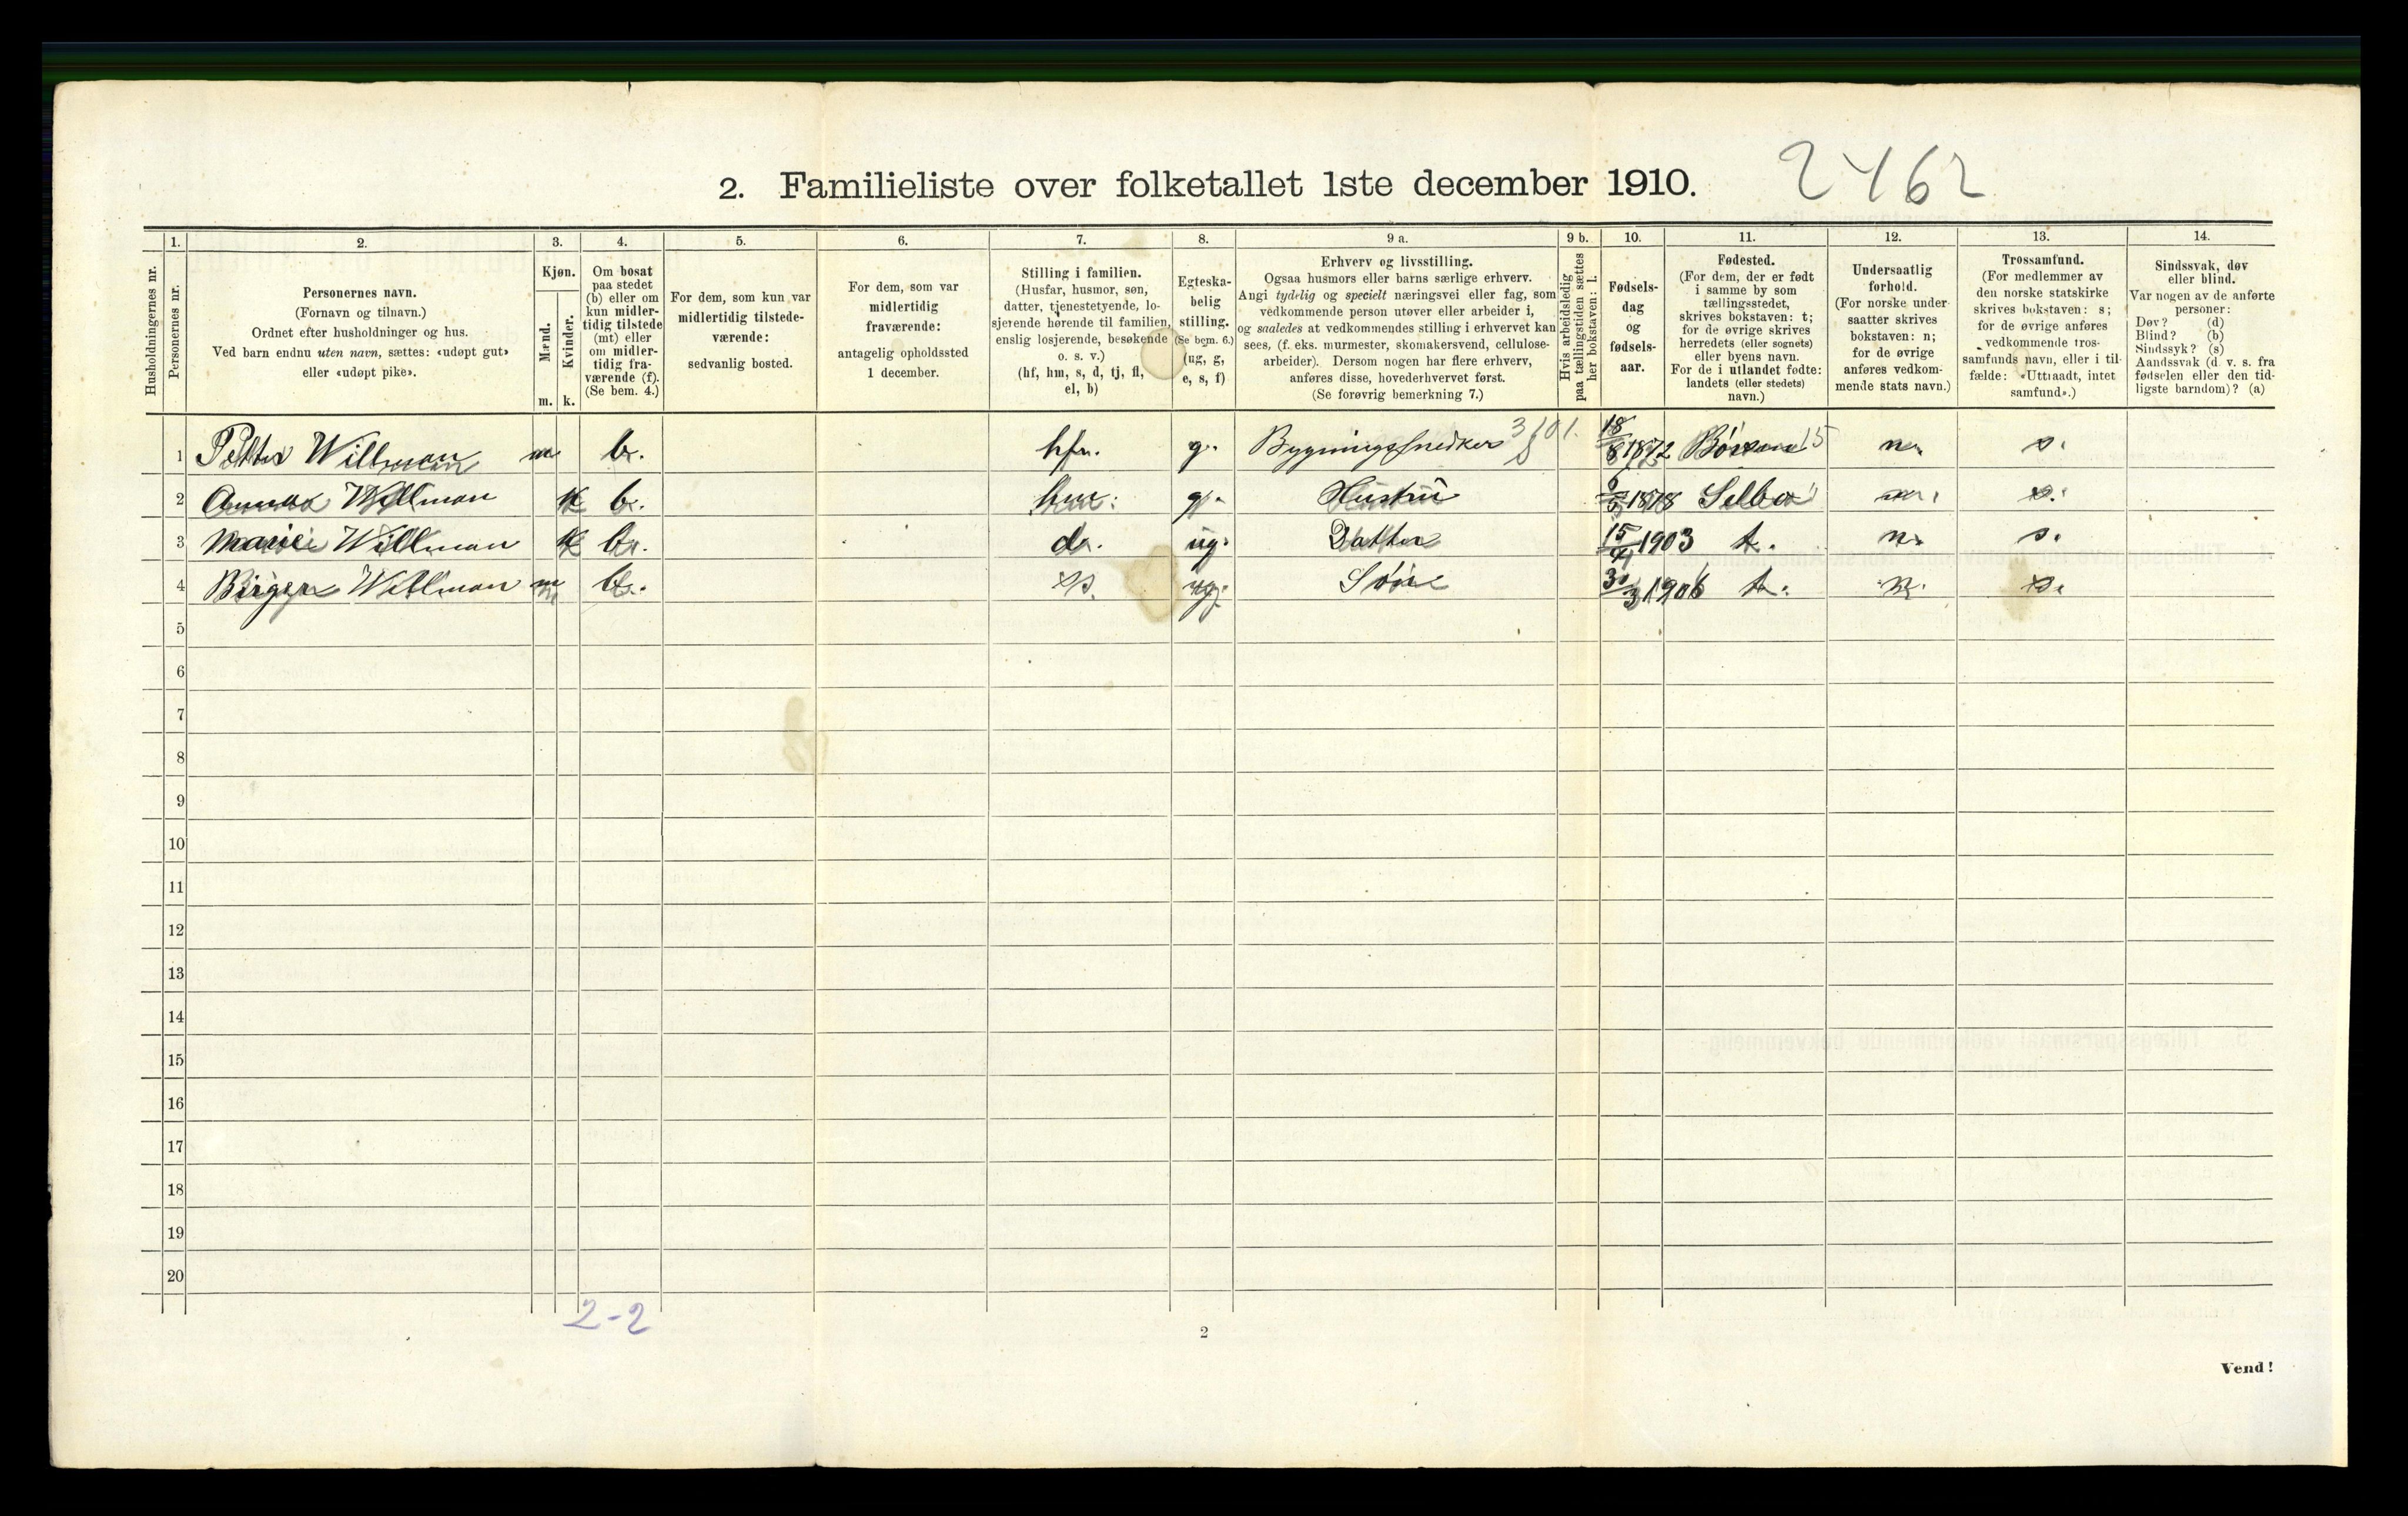 2. Familieliste over folketallet 1ste december 1910. 2462
1. 2. 3. 4. 5. 6. 7. 8. 9 a. 9 b. 10. 11. 12. 13. 14.
Husholdningernes nr.
Personernes nr.
Personernes navn.
(Fornavn og tilnavn.)
Ordnet efter husholdninger og hus.
Ved barn endnu uten navn, sættes: «udøpt gut»
eller «udøpt pike».
Kjøn.
Mænd.
Kvinder.
m. k.
Om bosat
paa stedet
(b) eller om
kun midler-
tidig tilstede
(mt) eller
om midler-
tidig fra-
værende (f).
(Se bem. 4.)
For dem, som kun var
midlertidig tilstede-
værende:
sedvanlig bosted.
For dem, som var
midlertidig
fraværende:
antagelig opholdssted
1 december.
Stilling i familien.
(Husfar, husmor, søn,
datter, tjenestetyende, lo-
sjerende hørende til familien,
enslig losjerende, besøkende
o. s. v.)
(hf, hm, s, d, tj, fl,
el, b)
Egteska-
belig
stilling.
(Se bem. 6.)
(ug, g,
e, s, f)
Erhverv og livsstilling.
Ogsaa husmors eller barns særlige erhverv.
Angi tydelig og specielt næringsvei eller fag, som
vedkommende person utøver eller arbeider i,
og saaledes at vedkommendes stilling i erhvervet kan
sees, (f. eks. murmester, skomakersvend, cellulose-
arbeider). Dersom nogen har flere erhverv,
anføres disse, hovederhvervet først.
(Se forøvrig bemerkning 7.)
Hvis arbeidsledig
paa tællingstiden sættes
her bokstaven: l.
Fødsels-
dag
og
fødsels-
aar.
Fødested.
(For dem, der er født
i samme by som
tællingsstedet,
skrives bokstaven: t;
for de øvrige skrives
herredets (eller sognets)
eller byens navn.
For de i utlandet fødte:
landets (eller stedets)
navn.)
Undersaatlig
forhold.
(For norske under-
saatter skrives
bokstaven: n;
for de øvrige
anføres vedkom-
mende stats navn.)
Trossamfund.
(For medlemmer av
den norske statskirke
skrives bokstaven: s;
for de øvrige anføres
vedkommende tros-
samfunds navn, eller i til-
fælde: «Uttraadt, intet
samfund».)
Sindssvak, døv
eller blind.
Var nogen av de anførte
personer:
Døv? (d)
Blind? (b)
Sindssyk? (s)
Aandssvak (d. v. s. fra
fødselen eller den tid-
ligste barndom)? (a)
1 Petter Willman m b. hf. g. Bygningssnedker 3101. 18/8 1872 Börsen 15 n. s.
2 Anna Willman k b. hm. g. Hustru 1878 Selbu n. s.
3 Marie Willman k b. d. ug. Datter 15/4 1903 t. n. s.
4 Birger Willman m b. s. ug. Søn 30/3 1906 t. n. s.
5
6
7
8
9
10
11
12
13
14
15
16
17
18
19
20
2-2
2
Vend!